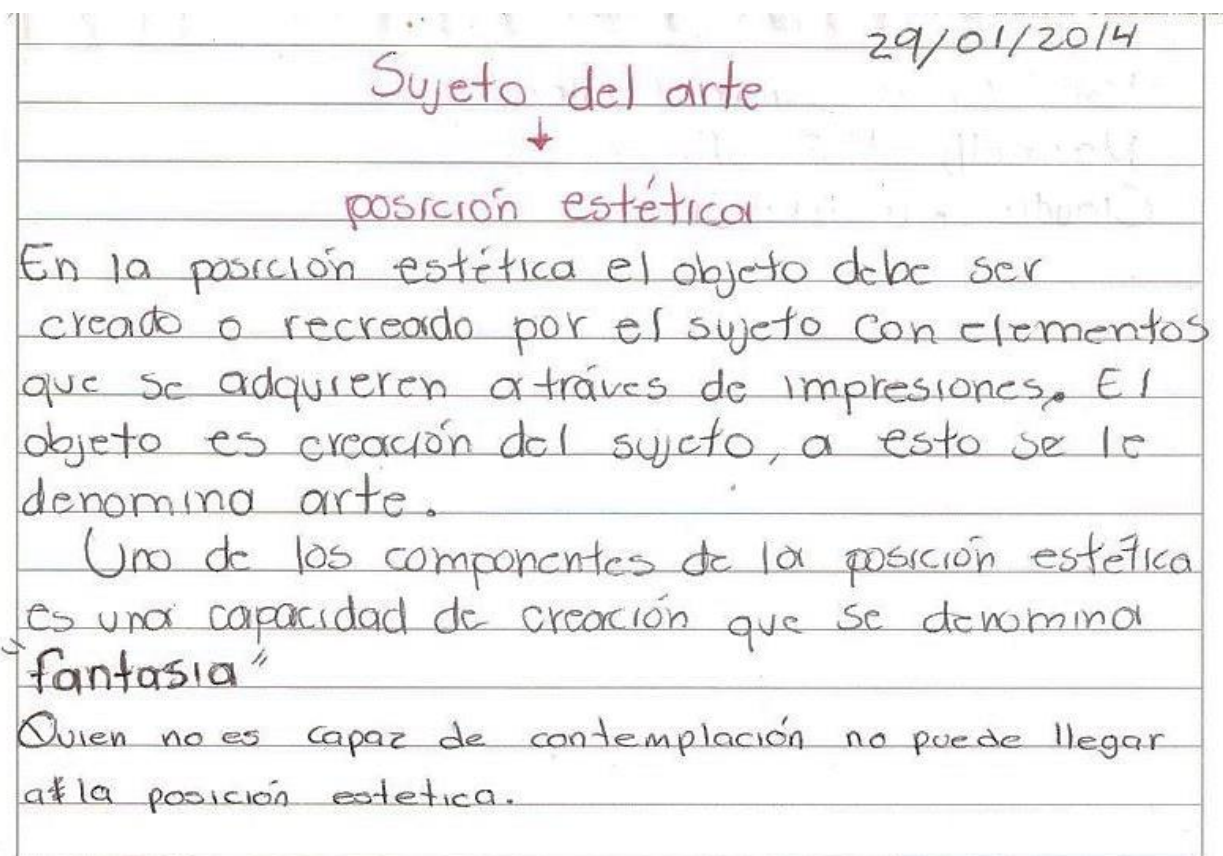 29/01/2014
Sujeto del arte
↓
posición estética
En la posición estética el objeto debe ser
creado o recreado por el sujeto con elementos
que se adquieren a tráves de impresiones. El
objeto es creación del sujeto, a esto se le
denomina arte.
Uno de los componentes de la posición estética
es una capacidad de creación que se denomina
"fantasia"
Quien no es capaz de contemplación no puede llegar
a la posición estetica.